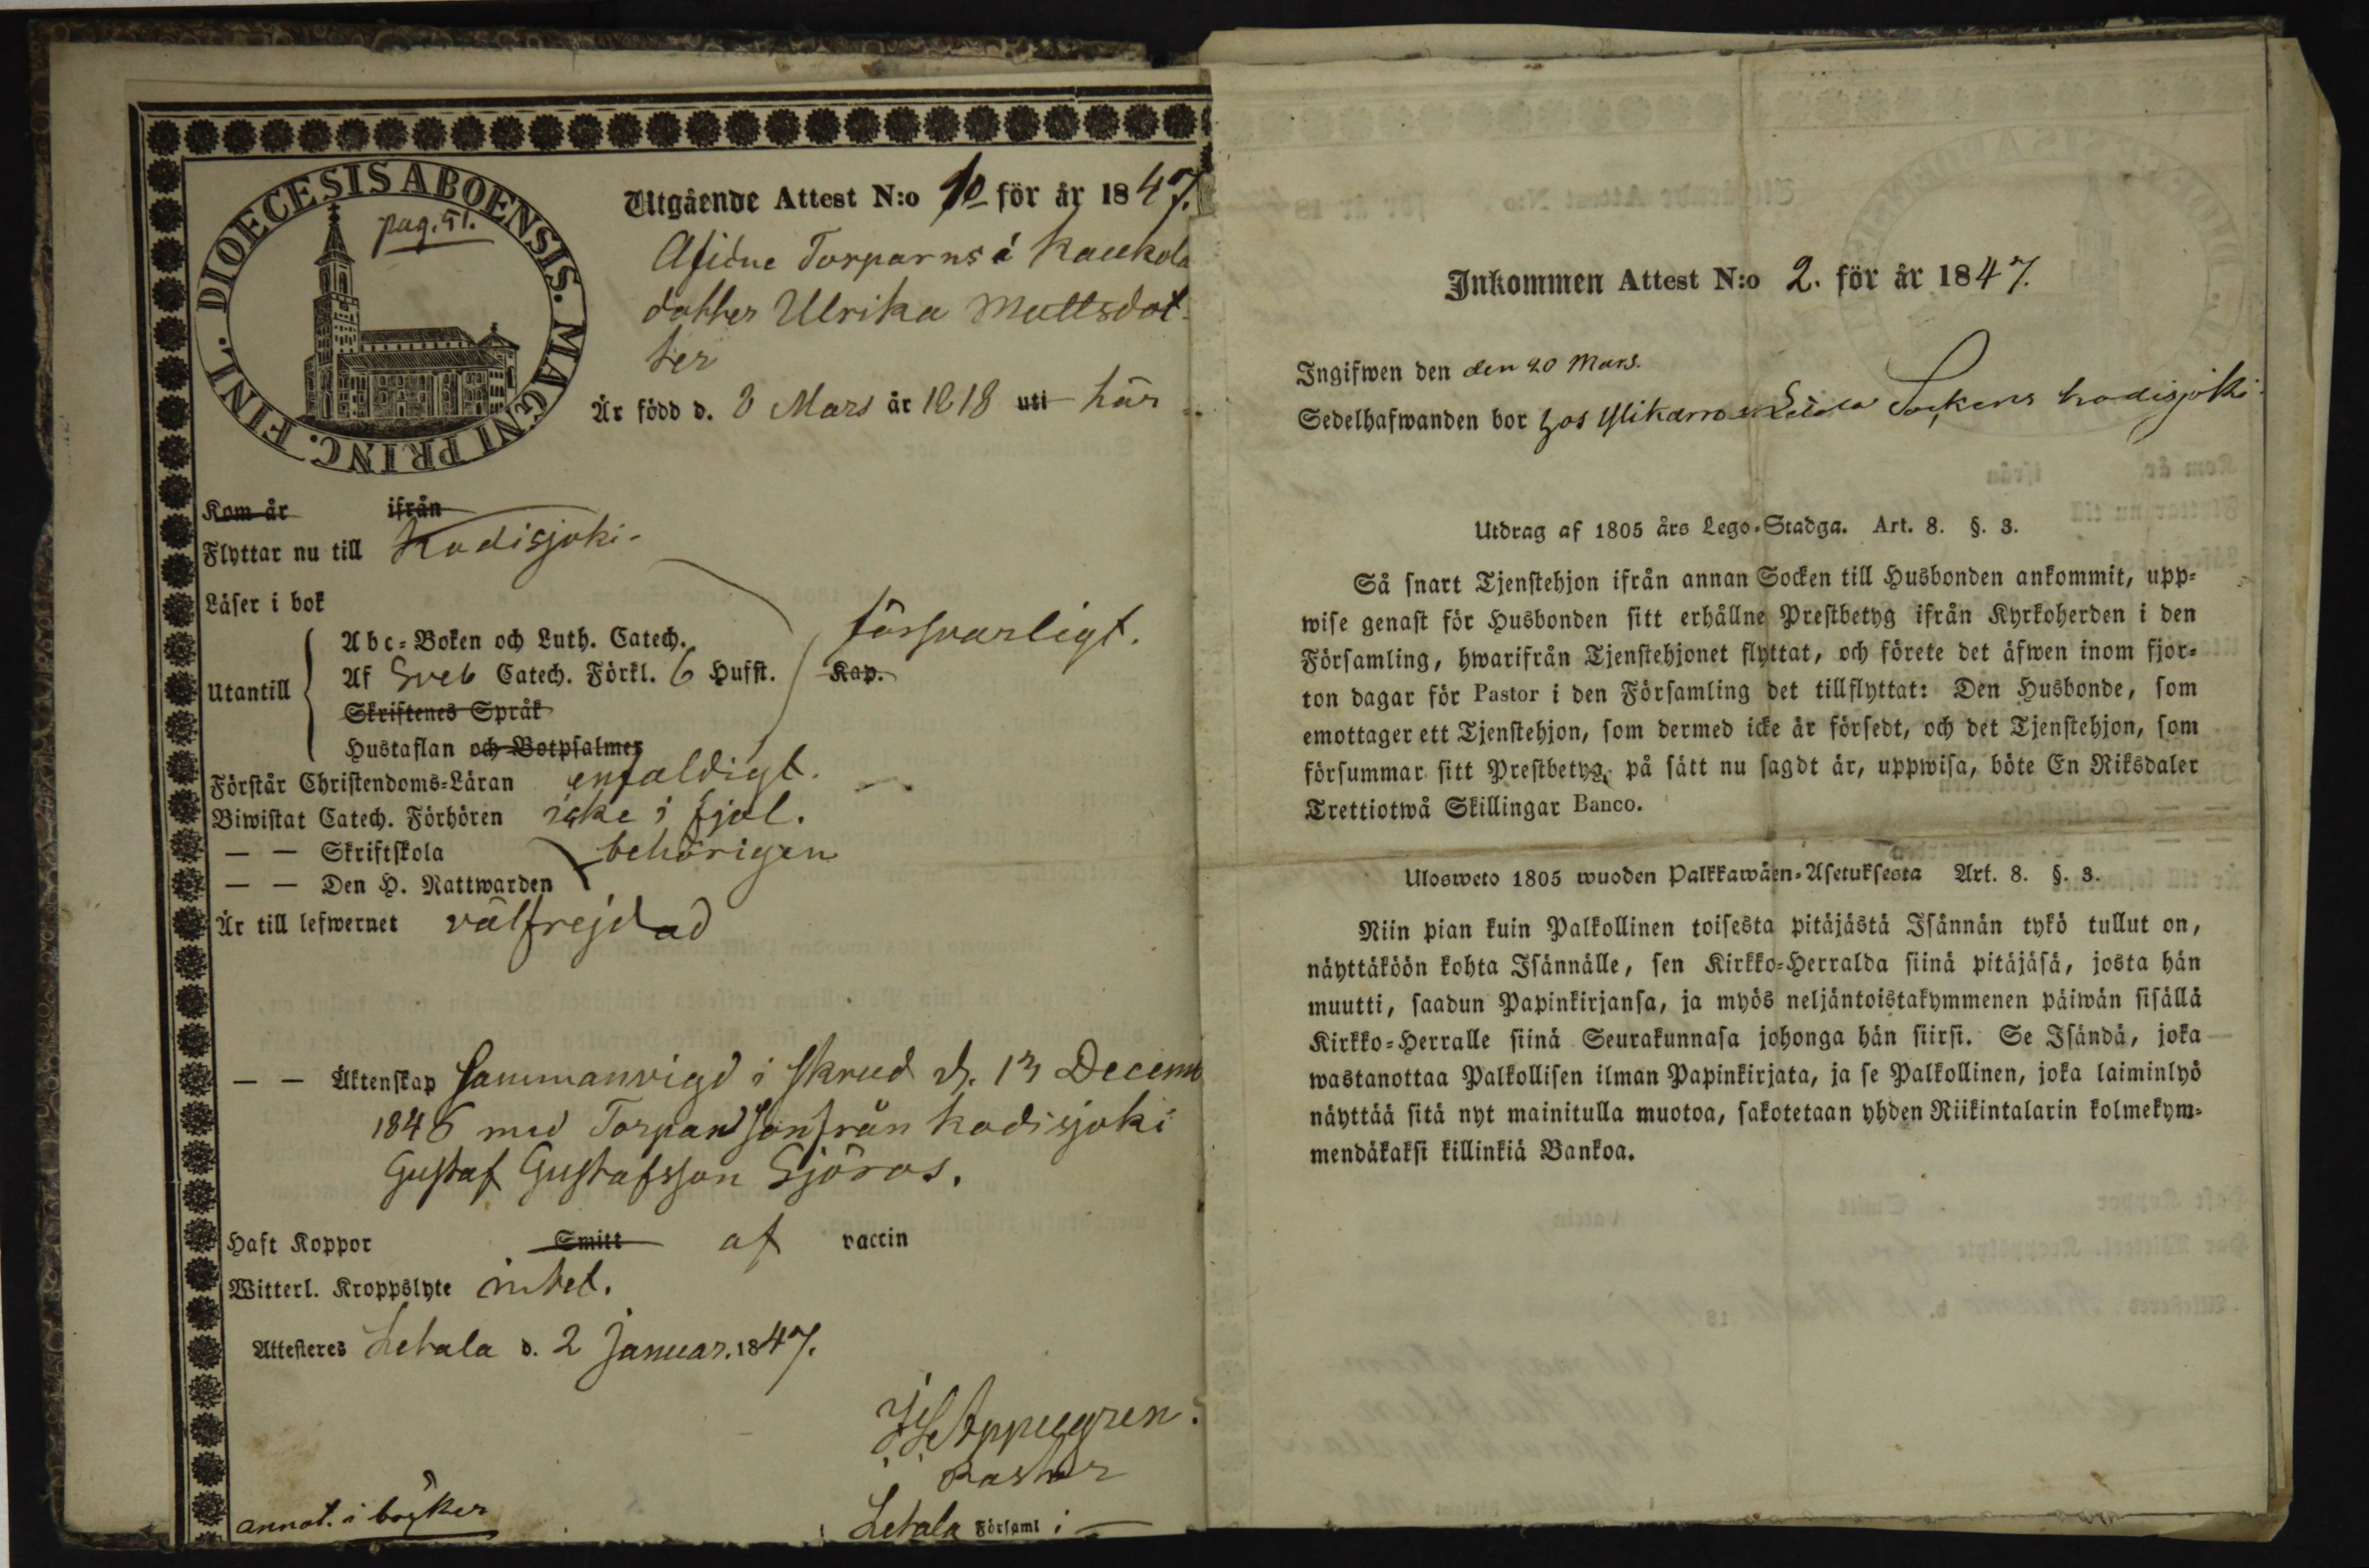 DIOECESIS ABOENSIS. MAGNI PRINC. FINL.
pag. 51.
Utgående Attest N:o 10 för år 1847.
Afidne Torparns á Kaukola
dotter Ulrika Mattsdot
ter
Är född d. 3 Mars år 1818 uti här
Kom år ifrån
Flyttar nu till Kodisjoki.
Läser i bok
försvarligt.
Abc-Boken och Luth. Catech.
Utantill
Af Sveb Catech. Förkl. 6 Hufst. Kap.
Skriftenes Språk
Hustaflan och Botpsalmer
Förstår Christendoms-Läran enfaldigt.
Biwistat Catech. Förhören icke i fjol.
— — Skriftskola behörigen
— — Den H. Nattwarden
Är till lefwernet välfrejdad
— — Äktenskap Sammanvigd i skrud d. 13 Decemb
1846 med Torpand Son från Kodisjoki
Gustaf Gustafsson Sjöros.
Haft Koppor Smitt af vaccin
Witterl. Kroppslyte intet.
Attesteres Letala d. 2 Januar. 1847.
Appelgren.
Pastor
annot. i böcker
Letala Församl i —
Inkommen Attest N:o 2. för år 1847.
Ingifwen den den 20 Mars.
Sedelhafwanden bor hos Sockens Kodisjoki
Utdrag af 1805 års Lego-Stadga. Art. 8. §. 3.
Så snart Tjenstehjon ifrån annan Socken till Husbonden ankommit, upp-
wise genast för Husbonden sitt erhållne Prestbetyg ifrån Kyrkoherden i den
Församling, hwarifrån Tjenstehjonet flyttat, och förete det äfwen inom fjor-
ton dagar för Pastor i den Församling det tillflyttat: Den Husbonde, som
emottager ett Tjenstehjon, som dermed icke är försedt, och det Tjenstehjon, som
försummar sitt Prestbetyg, på sätt nu sagdt är, uppwisa, böte En Riksdaler
Trettiotwå Skillingar Banco.
Ulosweto 1805 wuoden Palkkawäen-Asetuksesta Art. 8. §. 3.
Niin pian kuin Palkollinen toisesta pitäjästä Isännän tykö tullut on,
näyttäköön kohta Isännälle, sen Kirkko-Herralda siinä pitäjäsä, josta hän
muutti, saadun Papinkirjansa, ja myös neljäntoistakymmenen päiwän sisällä
Kirkko-Herralle siinä Seurakunnasa johonga hän siirsi. Se Isändä, joka
wastanottaa Palkollisen ilman Papinkirjata, ja se Palkollinen, joka laiminlyö
näyttää sitä nyt mainitulla muotoa, sakotetaan yhden Riikintalarin kolmekym-
mendäkaksi killinkiä Bankoa.